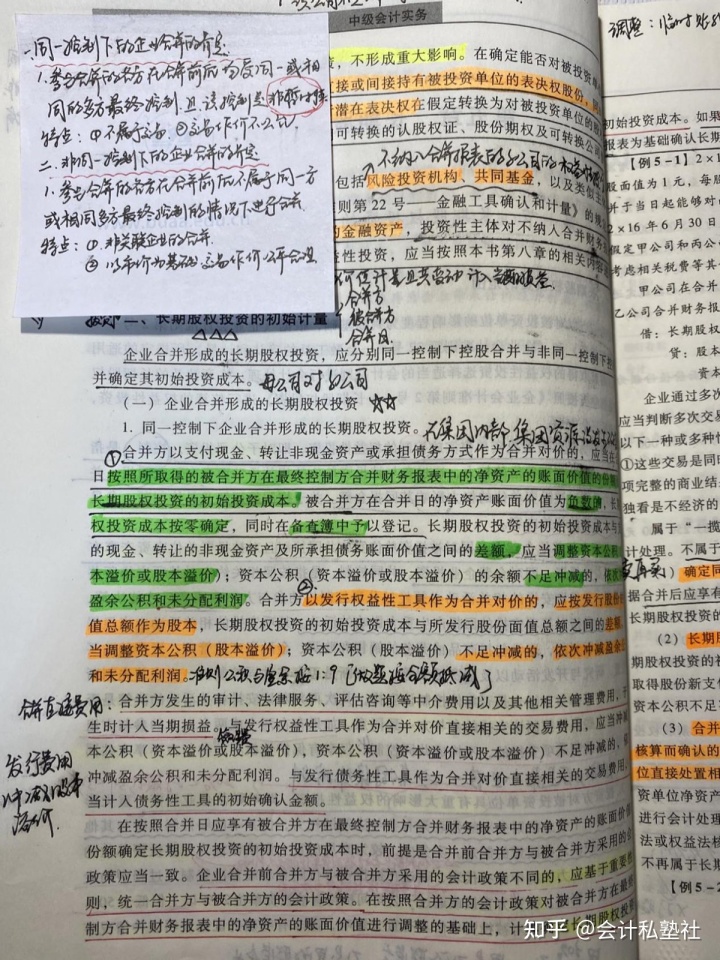 中级会计实务
一.同一控制下的企业合并的肯定
1.参与合并的各方在合并前后均受同一或相
同的多方最终控制且该控制是非暂时性
特点:①不属于交易 ②交易作价不公允
二.非同一控制下的企业合并的肯定
1.参与合并的各方在合并前后不属于同一方
或相同多方最终控制的情况下进行合并
特点:①.非关联企业的合并.
②以市价为基础,交易作价公平合理
,不形成重大影响。在确定能否对被投资单
接或间接持有被投资单位的表决权股份,
潜在表决权在假定转换为对被投资单位的股
可转换的认股权证、股份期权及可转换公司
不纳入合并报表的子公司的
包括风险投资机构、共同基金,以及类似主
则第 22 号——金融工具确认和计量》的
的金融资产,投资性主体对不纳入合并财务
性投资,应当按照本书第八章的相关内容
价值计量且其变动计入当期损益
合并方
被合并方
合并日
二、长期股权投资的初始计量
企业合并形成的长期股权投资,应分别同一控制下控股合并与非同一控制下控
并确定其初始投资成本。母公司对子公司
(一)企业合并形成的长期股权投资 ☆☆
1. 同一控制下企业合并形成的长期股权投资。在集团内部 集团资源
①合并方以支付现金、转让非现金资产或承担债务方式作为合并对价的,应当在
日按照所取得的被合并方在最终控制方合并财务报表中的净资产的账面价值的份额
长期股权投资的初始投资成本。被合并方在合并日的净资产账面价值为负数的,长
权投资成本按零确定,同时在备查簿中予以登记。长期股权投资的初始投资成本与
的现金、转让的非现金资产及所承担债务账面价值之间的差额,应当调整资本公积
本溢价或股本溢价);资本公积(资本溢价或股本溢价)的余额不足冲减的,依次
盈余公积和未分配利润。②合并方以发行权益性工具作为合并对价的,应按发行股份
值总额作为股本,长期股权投资的初始投资成本与所发行股份面值总额之间的差额
当调整资本公积(股本溢价);资本公积(股本溢价)不足冲减的,依次冲减盈余
和未分配利润。
合并直接费用:合并方发生的审计、法律服务、评估咨询等中介费用以及其他相关管理费用,于
生时计入当期损益。与发行权益性工具作为合并对价直接相关的交易费用,应当冲
发行费用
冲减股本
溢价.
本公积(资本溢价或股本溢价),资本公积(资本溢价或股本溢价)不足冲减的,
冲减盈余公积和未分配利润。与发行债务性工具作为合并对价直接相关的交易费用,
当计入债务性工具的初始确认金额。
在按照合并日应享有被合并方在最终控制方合并财务报表中的净资产的账面价值
份额确定长期股权投资的初始投资成本时,前提是合并前合并方与被合并方采用的会
政策应当一致。企业合并前合并方与被合并方采用的会计政策不同的,应基于重要性
则,统一合并方与被合并方的会计政策。在按照合并方的会计政策对被合并方在最终
制方合并财务报表中的净资产的账面价值进行调整的基础上,计算确定长期股权投资
调整:
初始投资成本。如果
报表为基础确认长期
【例 5-1】2×1
股面值为 1 元,每股
并于当日起能够对
2×16 年 6 月 30 日
假定甲公司和丙公
考虑相关税费等其
甲公司在合并
乙公司合并财务报
借:长期股权
贷:股本
资本
企业通过多次
应当判断多次交易
以下一种或多种情
①这些交易是同时
项完整的商业结
独看是不经济的
属于“一揽
计处理。不属于
(1)确定同
据合并后应享有
长期股权投资的
(2)长期
期股权投资的初
取得股份新支付
资本公积不足冲
(3)合并
核算而确认的
位直接处置相
资单位净资产
进行会计处理
法或权益法核
不再属于长期
【例 5-2
知乎 @会计私塾社